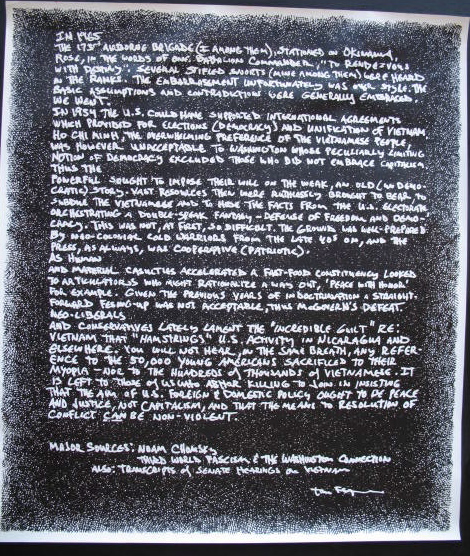 IN 1965
THE 173RD AIRBORNE BRIGADE (I AMONG THEM), STATIONED ON OKINAWA,
ROSE, IN THE WORDS OF OUR BATTALION COMMANDER, "TO RENDEZVOUS
WITH DESTINY." SEVERAL STIFLED SNORTS (MINE AMONG THEM) WERE HEARD
IN THE RANKS. THE EMBARRASSMENT UNFORTUNATELY WAS OVER STYLE. THE
BASIC ASSUMPTIONS AND CONTRADICTIONS WERE GENERALLY EMBRACED.
WE WENT.
IN 1954 THE U.S. COULD HAVE SUPPORTED INTERNATIONAL AGREEMENTS
WHICH PROVIDED FOR ELECTIONS (DEMOCRACY) AND UNIFICATION OF VIETNAM.
HO CHI MINH, THE OVERWHELMING PREFERENCE OF THE VIETNAMESE PEOPLE,
WAS HOWEVER UNACCEPTABLE TO WASHINGTON WHOSE PECULIARLY LIMITING
NOTION OF DEMOCRACY EXCLUDED THOSE WHO DID NOT EMBRACE CAPITALISM
THUS THE
POWERFUL SOUGHT TO IMPOSE THEIR WILL ON THE WEAK, AN OLD (UNDEMO-
CRATIC) STORY. VAST RESOURCES THEN WERE RUTHLESSLY BROUGHT TO BEAR, TO
SUBDUE THE VIETNAMESE AND TO HIDE THE FACTS FROM THE U.S. ELECTORATE,
ORCHESTRATING A DOUBLE-SPEAK FANTASY - DEFENSE OF FREEDOM AND DEMO-
CRACY. THIS WAS NOT, AT FIRST, SO DIFFICULT. THE GROUND WAS WELL-PREPARED
BY COLD WARRIORS FROM THE LATE 40s ON, AND THE
PRESS, AS ALWAYS, WAS COOPERATIVE (PATRIOTIC).
AS HUMAN
AND MATERIAL CASUALTIES ACCELERATED A FAST-FOOD CONSTITUENCY LOOKED
TO WHO MIGHT RATIONALIZE A WAY OUT, 'PEACE WITH HONOR'
FOR EXAMPLE. GIVEN THE PREVIOUS YEARS OF INDOCTRINATION A STRAIGHT-
FORWARD WAS NOT ACCEPTABLE, THUS McGOVERN'S DEFEAT.
NEO-LIBERALS
AND CONSERVATIVES LATELY LAMENT THE "INCREDIBLE GUILT" RE:
VIETNAM THAT "HAMSTRINGS" U.S. ACTIVITY IN NICARAGUA AND
ELSEWHERE. YOU WILL NOT HEAR, IN THE SAME BREATH, ANY REFER-
ENCE TO THE 50,000 YOUNG AMERICANS SACRIFICED TO THEIR
MYOPIA - NOR TO THE HUNDREDS OF THOUSANDS OF VIETNAMESE. IT
IS LEFT TO THOSE OF US WHO ABHOR KILLING TO JOIN IN INSISTING
THAT THE AIM OF U.S. FOREIGN & DOMESTIC POLICY OUGHT TO BE PEACE
AND JUSTICE, NOT CAPITALISM, AND THAT THE MEANS TO RESOLUTION OF
CONFLICT CAN BE NON-VIOLENT.
MAJOR SOURCES: NOAM CHOMSKY
THIRD WORLD FASCISM & THE WASHINGTON CONNECTION
ALSO: TRANSCRIPTS OF SENATE HEARINGS ON VIETNAM